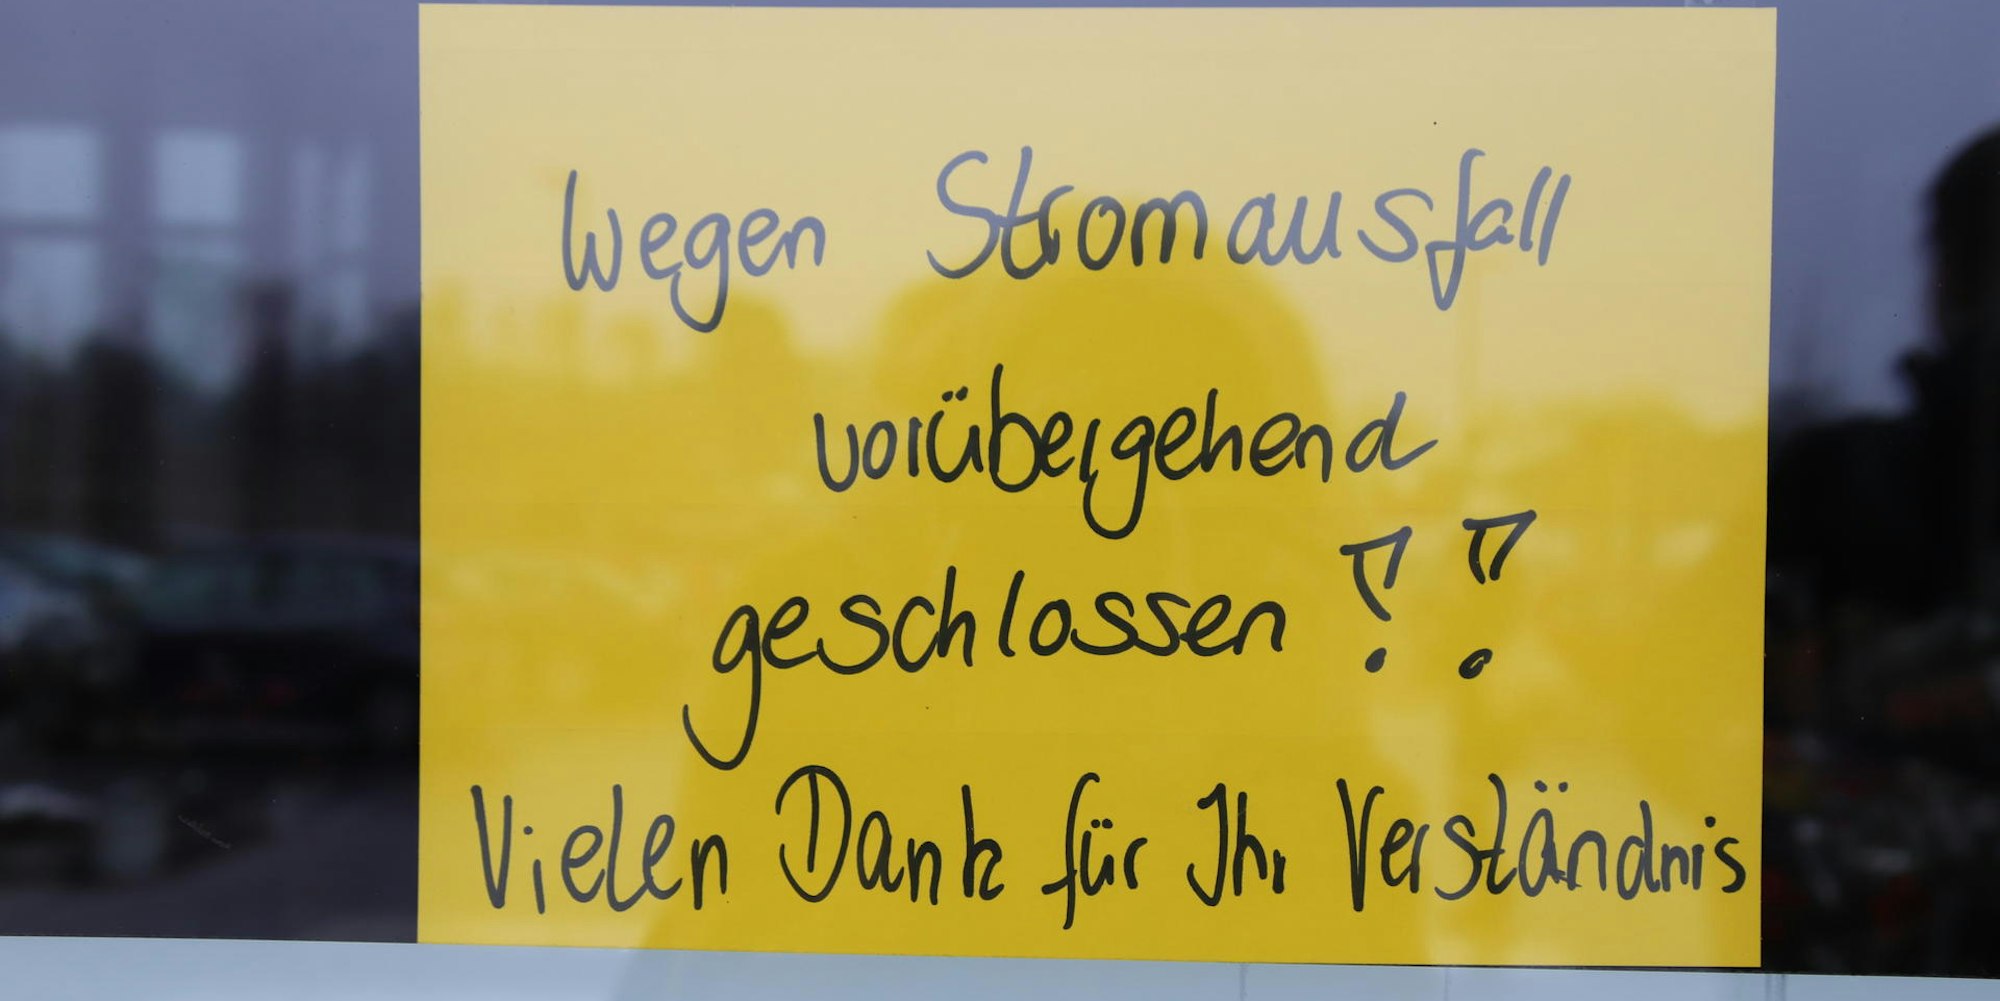 Wegen Stromausfall
vorübergehend
geschlossen !!
Vielen Dank für Ihr Verständnis